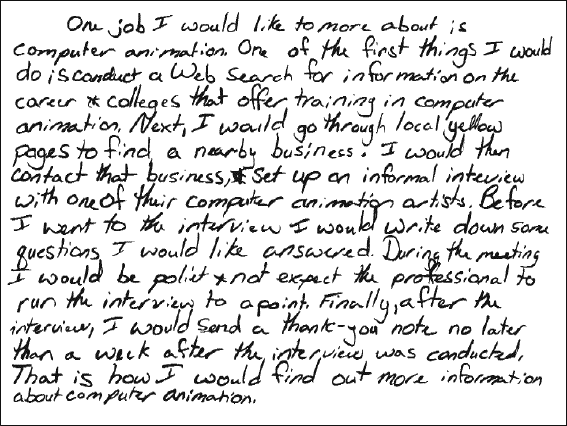 One job I would like to more about is
computer animation. One of the first things I would
do is conduct a Web Search for information on the
career & colleges that offer training in computer
animation. Next, I would go through local yellow
pages to find a nearby business. I would then
contact that business, & set up an informal inteview
with one of their computer animation artists. Before
I went to the interview I would write down some
questions I would like answered. During the meeting
I would be poliet & not expect the professional to
run the interview to a point. Finally, after the
interview, I would send a thank-you note no later
than a week after the interview was conducted.
That is how I would find out more information
about computer animation.